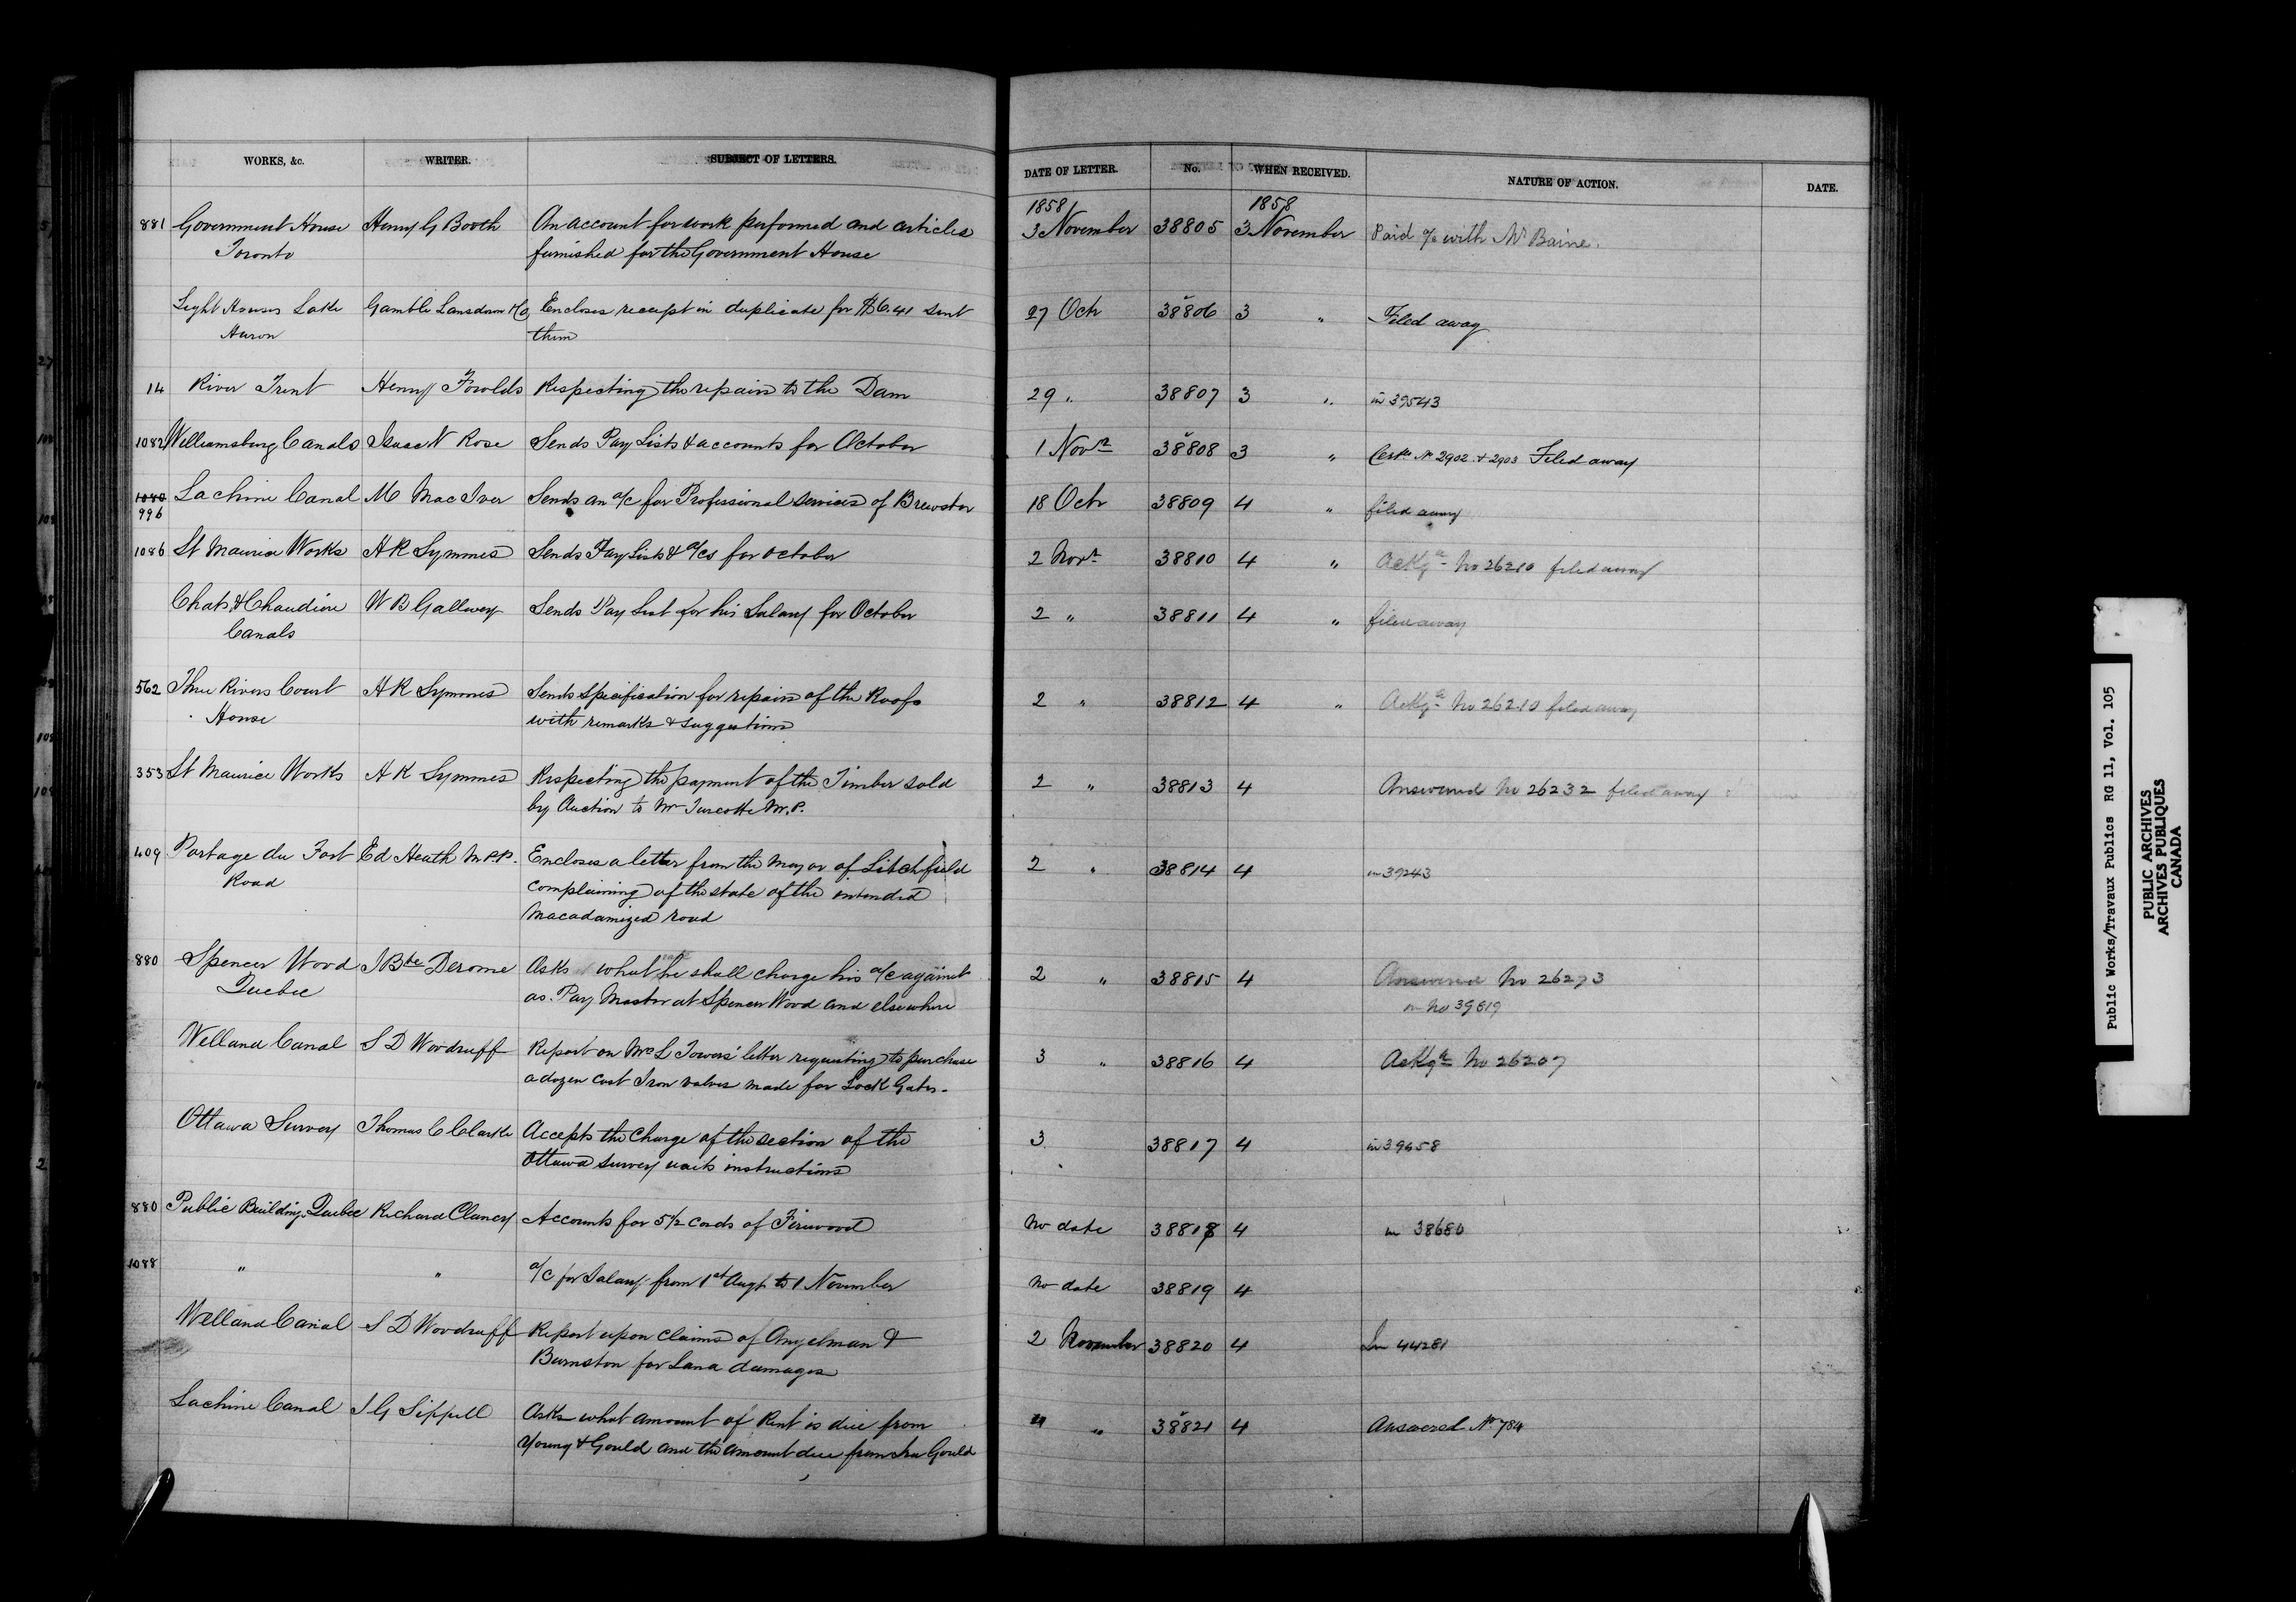 WORKS, &c. WRITER. SUBJECT OF LETTERS. DATE OF LETTER. No. WHEN RECEIVED. NATURE OF ACTION. DATE.
1858 1858
881 Government House Henry G Booth An account for work performed and articles 3 November 38805 3 November Paid a/c with Mr Baine.
Toronto furnished for the Government House
Light Houses Lake Gamble Lansdown & Co Encloses receipt in duplicate for $6.41 sent 27 Octr 38806 3 " Filed away
Huron them
14 River Trent Henry Fowlds Respecting the repairs to the Dam 29 " 38807 3 " in 39543
1082 Williamsburg Canals Isaac N Rose Sends Pay Lists & accounts for October 1 Novr 38808 3 " Certs No 2902 & 2903 Filed away
1080 Lachine Canal M MacIver Sends an a/c for Professional services of Brewster 18 Octr 38809 4 " filed away
996
1086 St Maurice Works A R Symmes Sends Pay Lists & a/cs for October 2 Novr 38810 4 " Ackgd No 26210 filed away
Chats & Chaudiere W B Gallwey Sends Pay List for his Salary for October 2 " 38811 4 " filed away
Canals
562 Three Rivers Court A R Symmes Sends Specification for repairs of the Roofs 2 " 38812 4 " Ackgd No 26210 filed away
House with remarks & suggestions
353 St Maurice Works A R Symmes Respecting the payment of the Timber sold 2 " 38813 4 Answered No 26232 filed away
by Auction to Mr Turcotte M.P.
409 Portage du Fort Ed Heath M.P.P. Encloses a letter from the Mayor of Litchfield 2 " 38814 4 in 39243
Road complaining of the state of the intended
Macadamized road
880 Spencer Wood J Bte Derome Asks what he shall charge his a/c against 2 " 38815 4 Answered No 26273
Quebec as Pay Master at Spencer Wood and elsewhere in No 39619
Welland Canal S D Woodruff Report on Mrs L Towers' letter requesting to purchase 3 " 38816 4 Ackgd No 26207
a dozen cast Iron valves made for Lock Gates.
Ottawa Survey Thomas C Clarke Accepts the Charge of the section of the 3 38817 4 in 39658
Ottawa survey waits instructions
880 Public Building Quebec Richard Clancy Accounts for 5 1/2 cords of Firewood No date 38818 4 in 38680
1088 " " a/c for Salary from 1st Augt to 1 November No date 38819 4
Welland Canal S D Woodruff Report upon Claims of Angelman & 2 November 38820 4 In 44281
Burnston for Land damages
Lachine Canal J G Sippell Asks what amount of Rent is due from " " 38821 4 Answered No 784
Young & Gould and the amount due from Ira Gould
Public Works/Travaux Publics RG 11, Vol. 105
PUBLIC ARCHIVES
ARCHIVES PUBLIQUES
CANADA